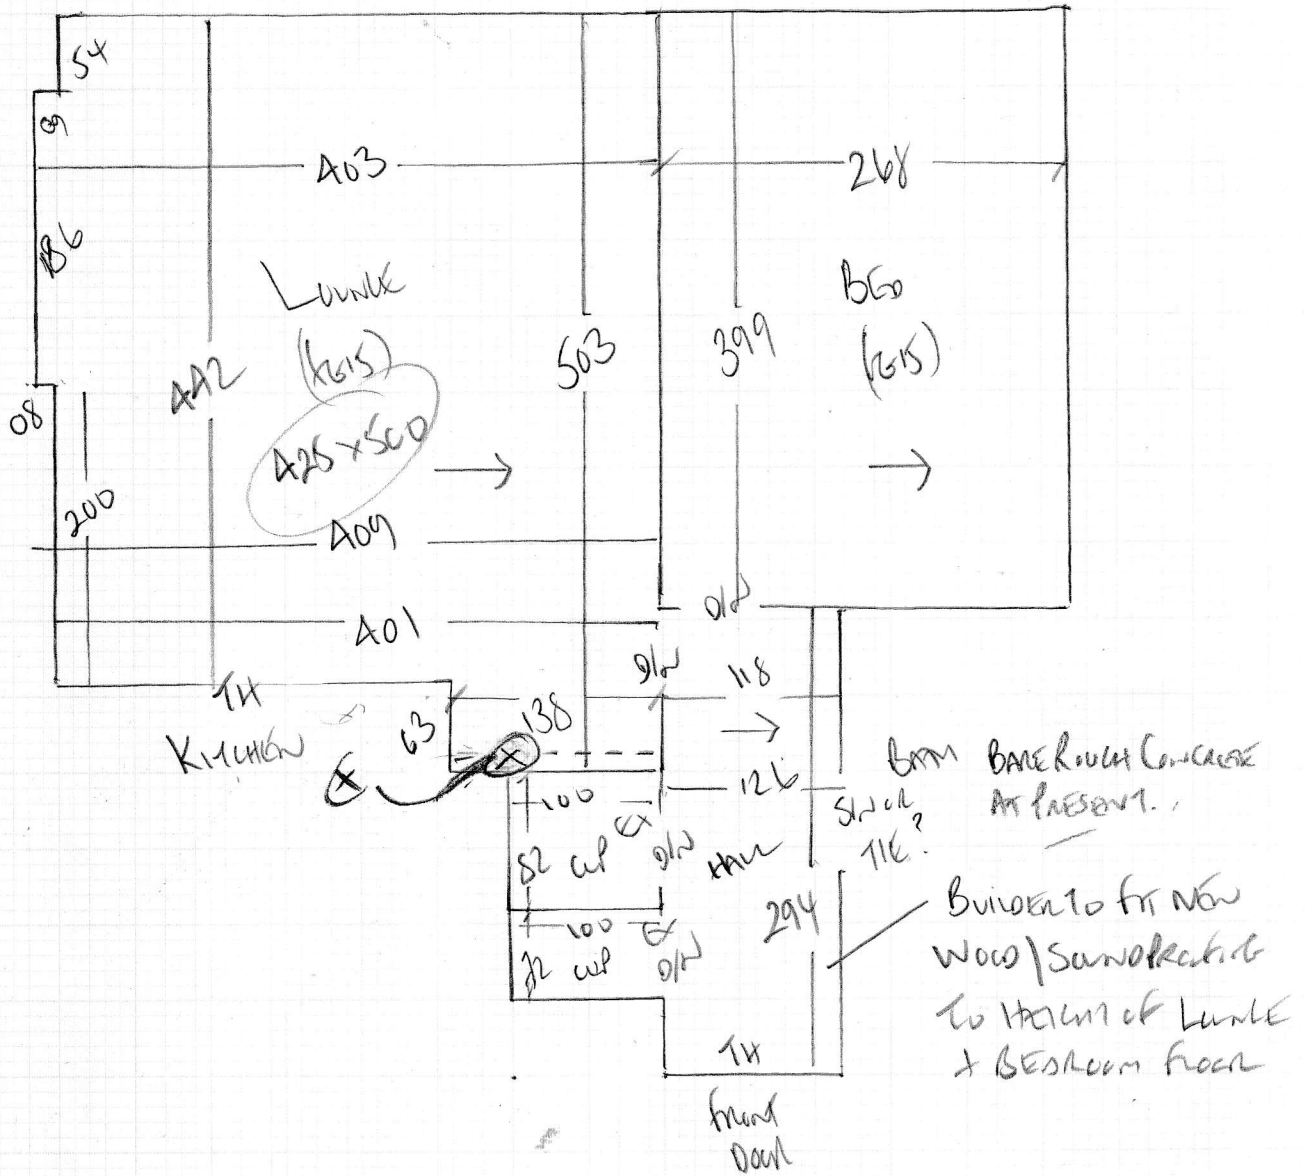 54
09
403
268
186
LOUNGE
BED
503
399
442
08
425 x 500
200
409
401
D/W
D/W
118
TH
KITCHEN
63
138
X
X
126
BATH
BARE ROUGH CONCRETE
AT PRESENT.
100
EX
D/W
HALL
TILE?
82 CUP
294
BUILDER TO FIT NEW
WOOD/SOUNDPROOFING
TO HEIGHT OF LOUNGE
+ BEDROOM FLOOR
100
EX
D/W
72 CUP
TH
FRONT
DOOR